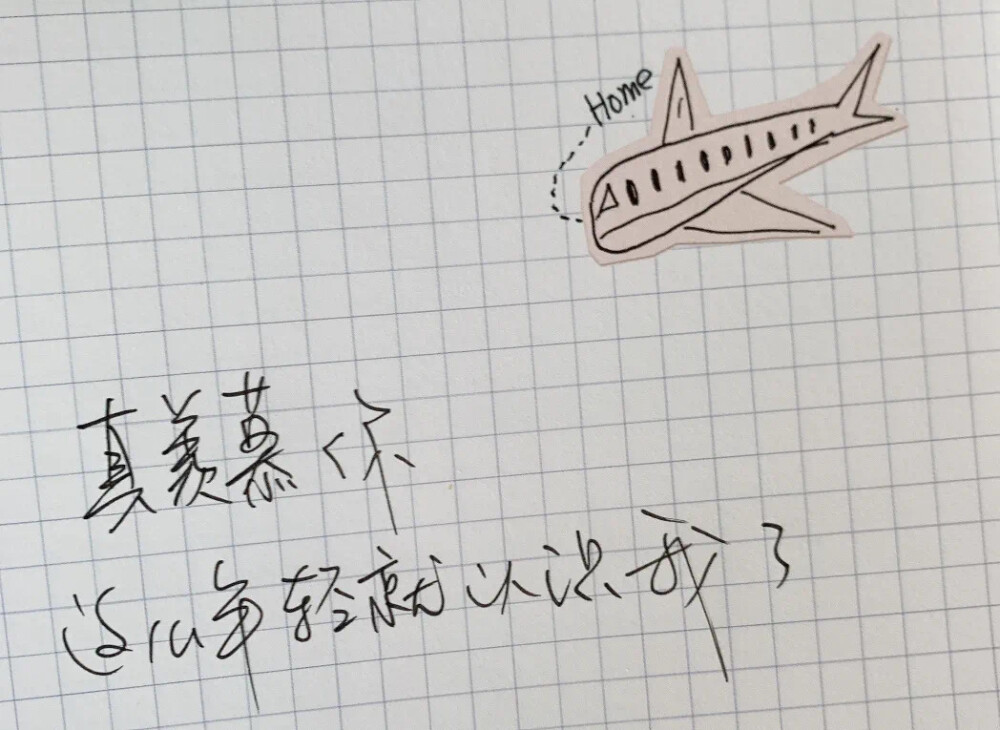 Home
真羡慕你
这么年轻就认识我了